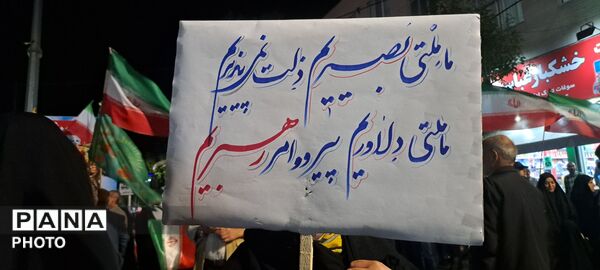 ما ملّتی بصیریم ذلت نمی پذیریم
ما ملتی دلاوریم پیرو امر رهبریم
خشکبار
PANA
PHOTO